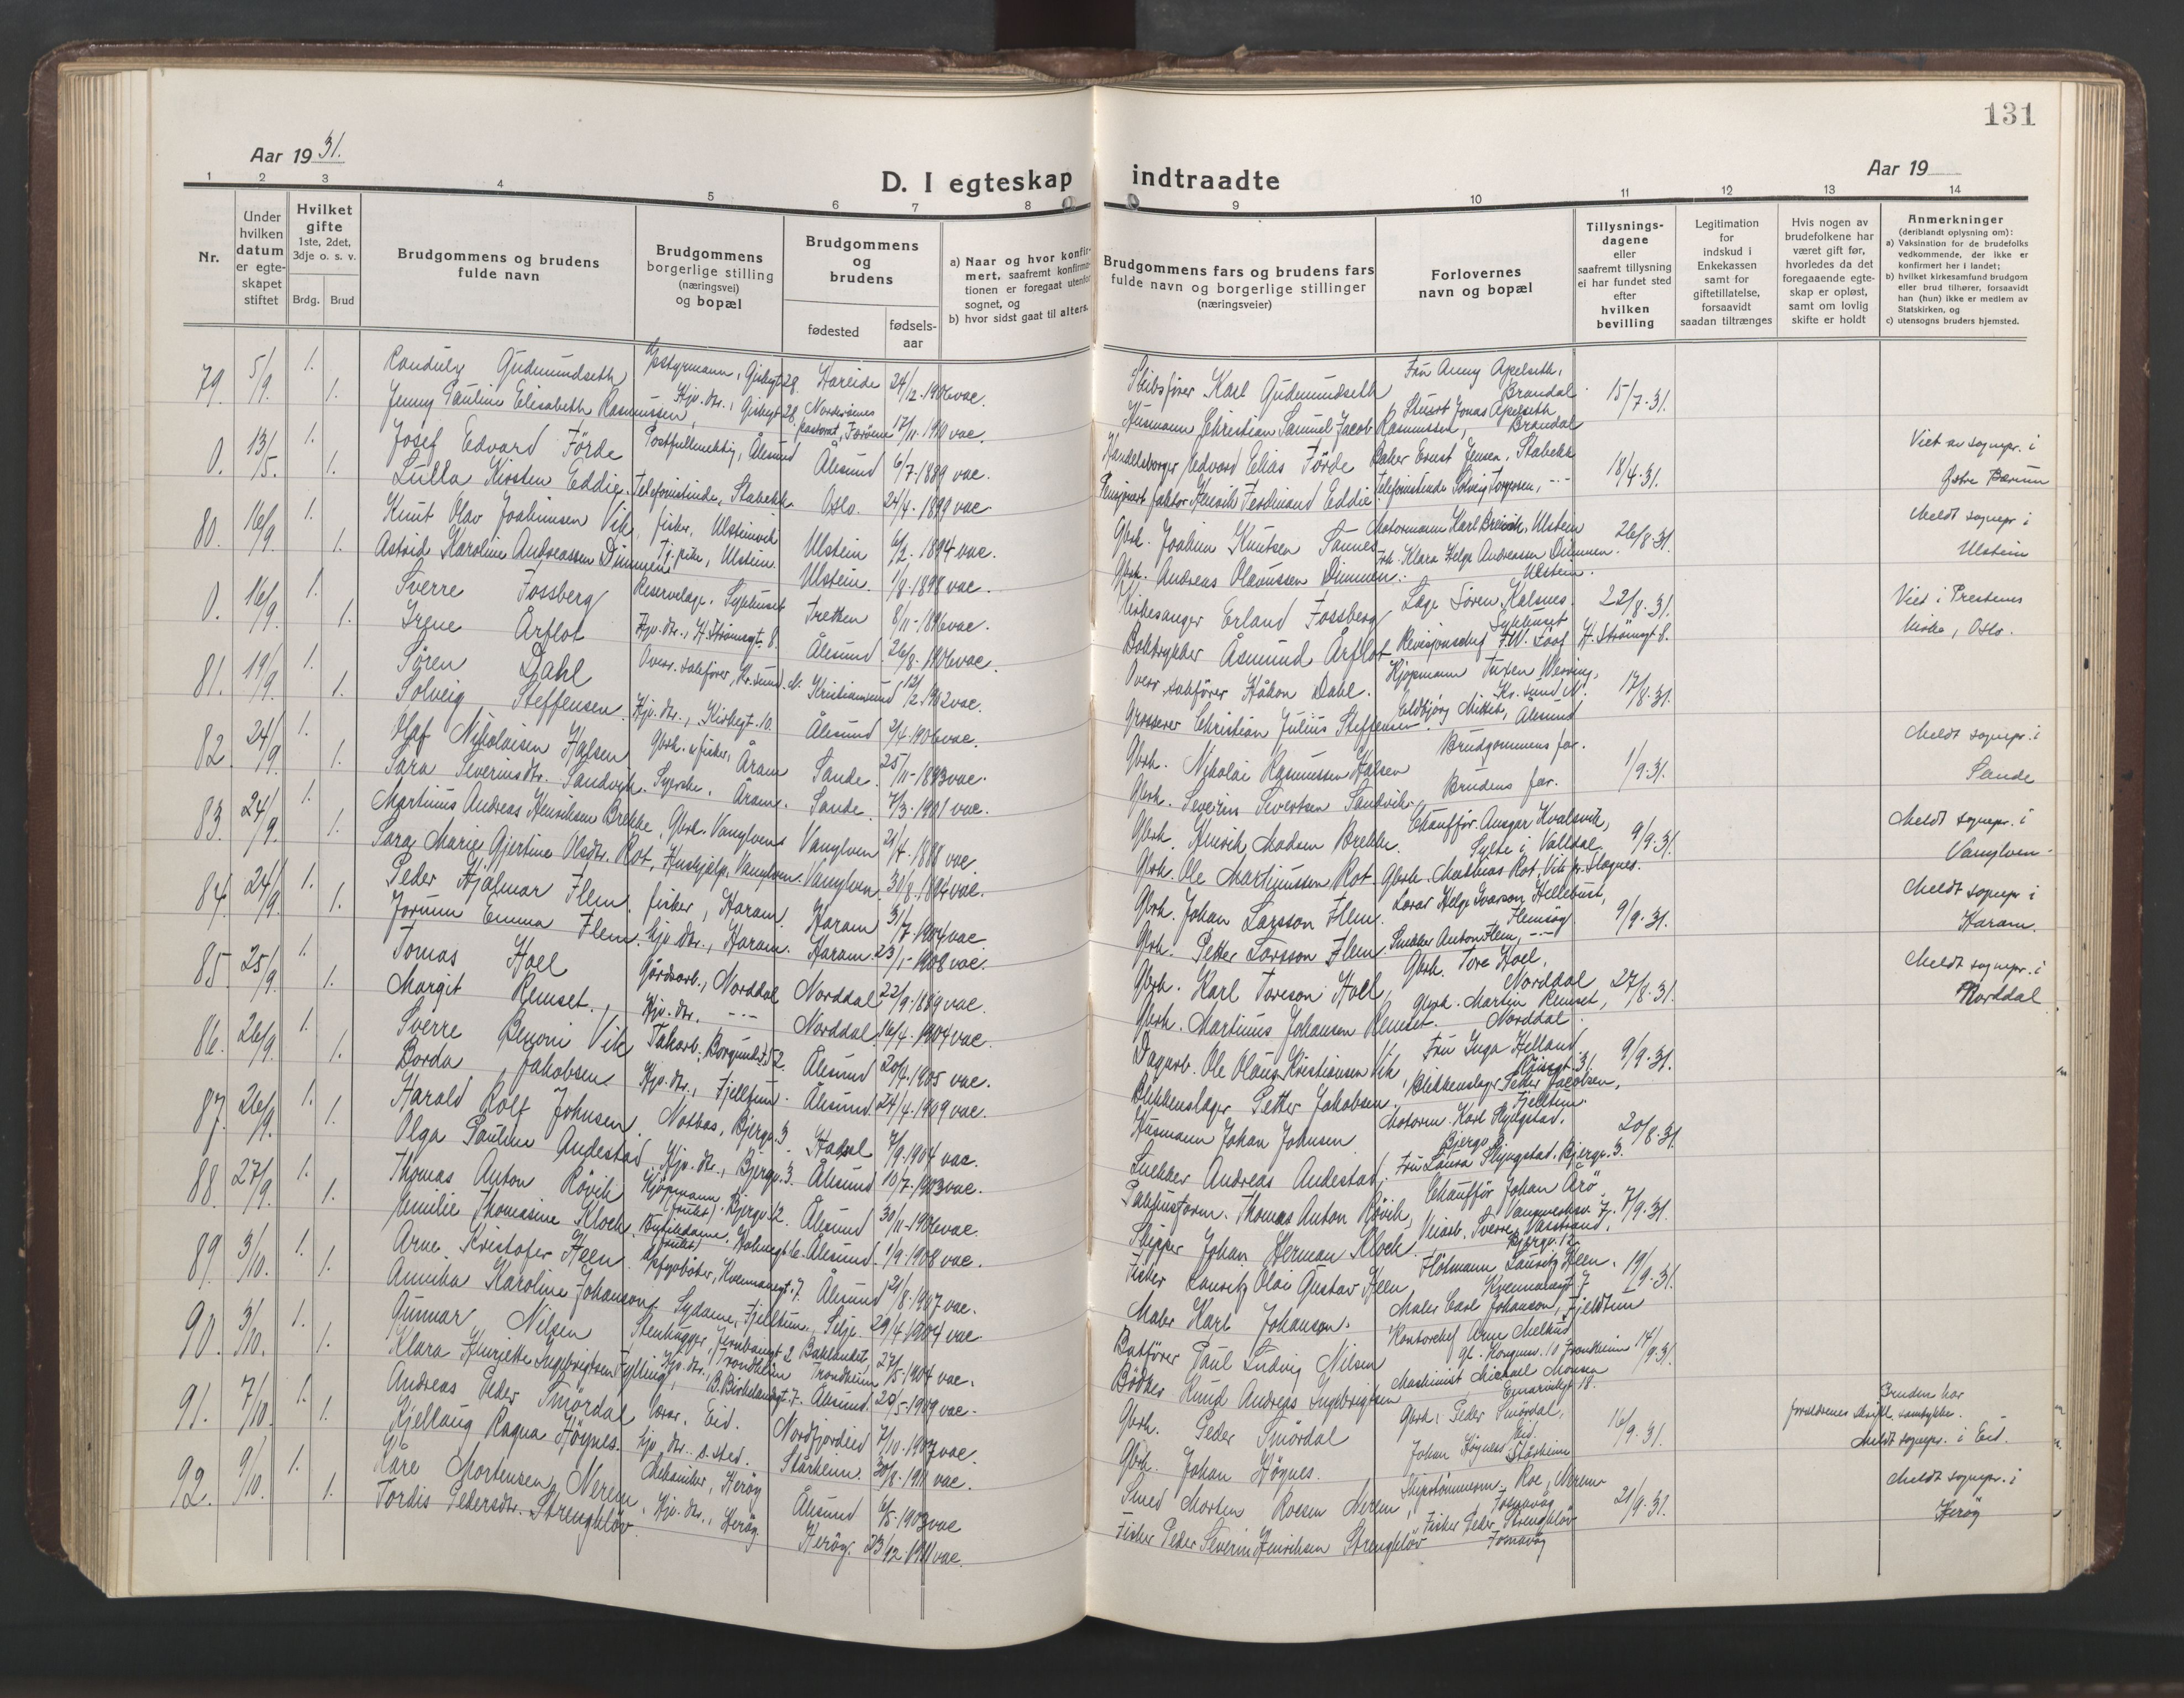 131
Aar 19 31.
Aar 19
D. I egteskap indtraadte
1 2 3 4 5 6 7 8 9 10 11 12 13 14
Nr.
Under hvilken datum er egte-skapet stiftet
Hvilket gifte 1ste, 2det, 3dje o. s. v.
Brdg. Brud
Brudgommens og brudens fulde navn
Brudgommens borgerlige stilling (næringsvei) og bopæl
Brudgommens og brudens
fødested
fødsels-aar
a) Naar og hvor konfir-mert, saafremt konfirma-tionen er foregaat utenfor sognet, og
b) hvor sidst gaat til alters.
Brudgommens fars og brudens fars fulde navn og borgerlige stillinger (næringsveier)
Forlovernes navn og bopæl
Tillysnings-dagene eller saafremt tillysning ei har fundet sted efter hvilken bevilling
Legitimation for indskud i Enkekassen samt for giftetillatelse, forsaavidt saadan tiltrænges
Hvis nogen av brudefolkene har været gift før, hvorledes da det foregaaende egte-skap er opløst, samt om lovlig skifte er holdt
Anmerkninger (deriblandt oplysning om):
a) Vaksination for de brudefolks vedkommende, der ikke er konfirmert her i landet;
b) hvilket kirkesamfund brudgom eller brud tilhører, forsaavidt han (hun) ikke er medlem av Statskirken, og
c) utensogns bruders hjemsted.
79. 5/9. 1. Gudmundseth Hareide 24/12.1906 vac. Skibsfører Karl Gudmundseth Fru Anny Apelseth, Brandal 15/7.31.
1. Jenny Pauline Elisabeth Rasmussen, Hjv. dtr., 17/11.1910 vac. Husmann Christian Samuel Jacob Rasmussen, Stuert Jonas Apelseth Brandal
0. 13/5. 1. Josef Edvard Förde Postfullmektig, Ålesund Ålesund 6/7.1889 vac. Handelsborger Edvard Elias Förde Baker Ernst Jensen, Stabekk 18/4.31. Viet av sognepr. i
1. Lulla Kirsten Eddie. Telefonistinde, Stabekk. Oslo. 24/4.1899 vac. Pensjonert faktor Henrik Ferdinand Eddie. Telefonistinde Solveig Torgersen, -"- Østre Bærum
80. 16/9. 1. Knut Olav Joakimsen Vik, fisker, Ulsteinvik Ulstein 6/2.1894 vac. Gbrk. Joakim Knutsen Sannes Motormann Karl Breivik, Ulstein 26/8.31. Meldt sognepr i
1. Astrid Karoline Andreassen Dimmen. Tj. pike, Ulstein. Ulstein. 1/8.1898 vac. Gbrk. Andreas Olavussen Dimmen. Frk. Klara Helga Andreassen Dimmen. Ulstein. Ulstein
0. 16/9. 1. Sverre Fossberg Reservelæge, Sykehuset Tretten 8/11.1896 vac. Kirkesanger Erland Fossberg Læge Sören Kalsnes. Sykehuset 22/8.31. Viet i Prestenes
1. Irene Årflot Hjv. dtr., H. Strömsgt. 8. Ålesund 26/8.1906 vac. Boktrykker Åsmund Årflot Revisjonschef H. Strömsgt 8. kirke, Oslo.
81. 19/9. 1. Sören Dahl Overr. sakfører, Kr.sund N. Kristiansund 12/2.1902 vac. Overr. sakfører Håkon Dahl. Kjöpmann Kr. sund N. 17/8.31.
1. Solveig Steffensen Hjv. dtr., Kirkegt. 10. Ålesund 2/4.1906 vac. Grosserer Christian Julius Steffensen. Eldbjörg Mittet, Ålesund
82. 24/9. 1. Olaf Nikolaisen Halsen Gbrk. & fisker, Åram Sande 25/11.1893 vac. Gbrk. Nikolai Rasmussen Halsen Brudgommens far. 1/9.31. Meldt sognepr. i
1. Sara Severinsdtr. Sandvik. Syerske, Åram. Sande. 7/3.1901 vac. Gbrk. Severin Sivertsen Sandvik. Brudens far. Sande
83. 24/9. 1. Martinus Andreas Henriksen Brekke, Gbrk. Vanylven Vanylven 21/4.1888 vac. Gbrk. Henrik Madsen Brekke. Chauffør Ansgar Kvalsvik, Sylte i Valldal. 9/9.31. Meldt sognepr. i
1. Sara Marie Gjertine Olsdtr. Rot, Hushjelp, Vanylven. Vanylven. 31/8.1894 vac. Gbrk. Ole Martinussen Rot. Gbrk. Mathias Rot, Vik pr. Slagnes. Vanylven.
84. 24/9. 1. Peder Hjalmar Flem. fisker, Haram Haram 3/7.1904 vac. Gbrk. Johan Larsson Flem. Lærer Helge Ivarson Hellebust, Flemsøy 9/9.31. Meldt sognepr i
1. Jorunn Emma Flem. hjv. dtr., Haram. Haram. 23/1.1908 vac. Gbrk. Petter Larsson Flem. Snekker Anton Flem, -"- Haram.
85. 25/9. 1. Tomas Hoel Gårdsarb., Norddal Norddal 22/9.1889 vac. Gbrk. Karl Toreson Hoel, Gbrk. Tore Hoel, Norddal 27/8.31. Meldt sognepr. i
1. Margit Remset. Hjv. dtr. -"- Norddal. 16/4.1904 vac. Gbrk. Martinus Johansen Remset. Gbrk. Marten Remset, Norddal. Norddal
86. 26/9. 1. Sverre Benoni Vik Fabarb., Borgundv. 52. Ålesund 20/9.1905 vac. Dagarb. Ole Olaus Kristiansen Vik Fru Inga Helland 9/9.31.
1. Borda Jakobsen. Hjv. dtr., Fjelltun. Ålesund. 24/4.1909 vac. Blikkenslager Petter Jakobsen, Blikkenslager Peder Jacobsen, Fjelltun.
87. 26/9. 1. Harald Rolf Johnsen. Notbas, Bjergv. 3 Hadsel 7/9.1904 vac. Husmann Johan Johnsen Motorm. Karl Slyngstad, Bjergv. 3. 20/8.31.
1. Olga Pauline Andestad Hjv. dtr., Bjergv. 3. Ålesund 10/7.1903 vac. Snekker Andreas Andestad, Fru Laura Slyngstad, Bjergv. 3.
88. 27/9. 1. Thomas Anton Rövik Kjöpmann (frukt) Bjergv. 12. Ålesund 30/11.1906 vac. Pakhusform. Thomas Anton Rövik, Chauffør Johan Årö 7/9.31.
1. Emilie Thomasine Klock. Butikdame (frukt), Holmegt 6. Ålesund. 1/9.1908 vac. Skipper Johan Herman Klock. Veiarb. Sverre Vasstrand, Bjergv. 12
89. 3/10. 1. Arne Kristofer Heen. Avfyrböter, Kvennaogt. 7. Ålesund 21/8.1907 vac. Fisker Lauritz Olai Gustav Heen. Flötmann Lauritz Heen. 19/9.31.
1. Annika Karoline Johanson. Sydame, Fjelltun. Selje. 29/4.1904 vac. Maler Karl Johanson. Maler Carl Johanson, Fjeldtun
90. 3/10. 1. Gunnar Nilsen Stenhugger, Jernbanegt 2 Trondheim Baklandet, Trondheim 27/5.1904 vac. Båtfører Paul Ludvig Nilsen Kontorchef Arne Melhus gl. Kongev. 11 Trondheim 14/9.31.
1. Klara Henriette Ingebrigtsen Fylling, Hjv. dtr., B. Birkelandsgt. 7. Ålesund. 20/5.1909 vac. Bödker Knud Andreas Ingebrigtsen Maskinist Michael Monsen
91. 7/10. 1. Andreas Peder Smördal lærer, Eid. Nordfjordeid 7/10.1907 vac. Gbrk. Peder Smördal Gbrk. Peder Smördal, Eid. 16/9.31. Bruden har foreldrenes skriftl. samtykke.
1. Kjellaug Ragna Högnes. hjv. dtr. s. sted. Stårheim. 30/8.1911 vac. Gbrk. Johan Högnes. Johan Högnes Stårheim Meldt sognepr. i Eid.
92. 9/10. 1. Kåre Mortensen Nerem Mekaniker, Heröy Ålesund 6/5.1903 vac Smed Morten Roesen Nerem, Skipstömmerm. Roe Nerem Fosnavåg 21/9.31. Meldt sognepr. i
1. Tordis Pedersdtr. Strengklöv. Hjv. dtr., Heröy. Heröy. 23/12.1911 vac. Fisker Peder Severin Henriksen Strengklöv Fisker Peder Strengklöv Fosnavåg Heröy